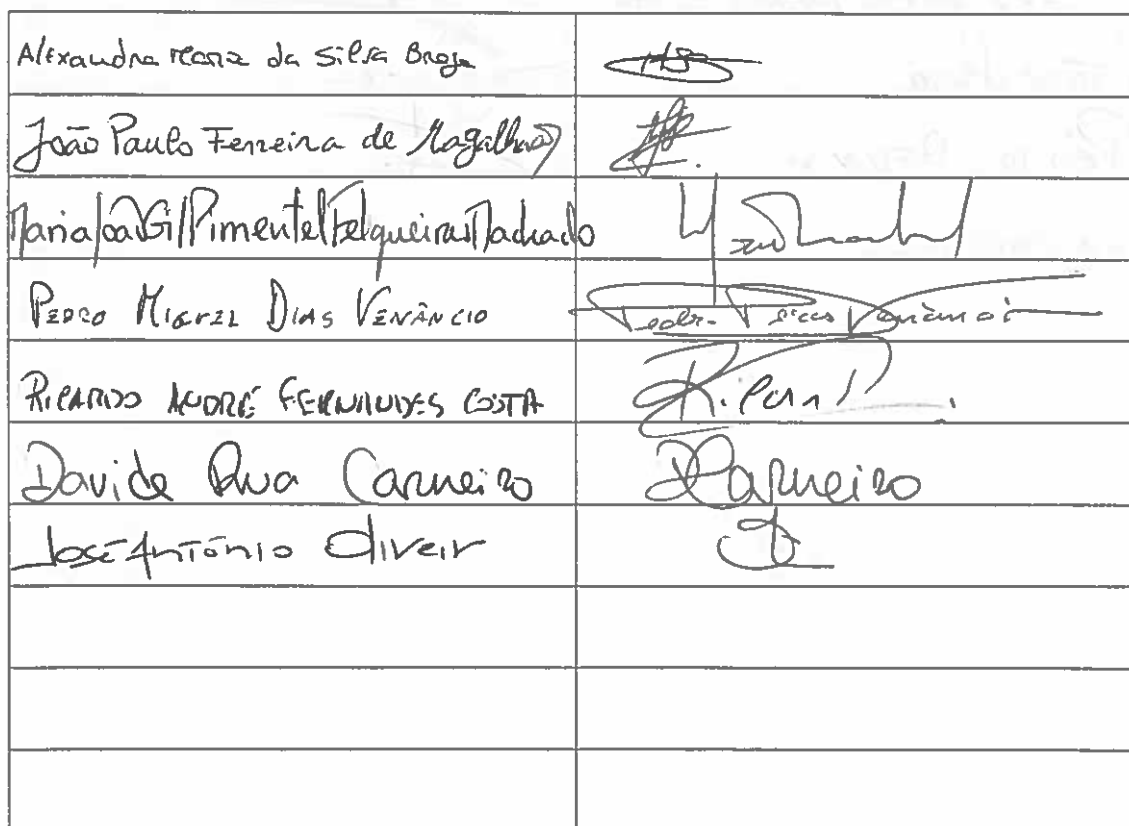 Alexandra Maria da Silva Braga
João Paulo Ferreira de Magalhães
Maria João Gil Pimentel Felgueiras Machado
PEDRO MIGUEL DIAS VENÂNCIO Pedro Dias Venâncio
RICARDO ANDRÉ FERNANDES COSTA
Davide Rua Carneiro DCarneiro
José António Oliveir